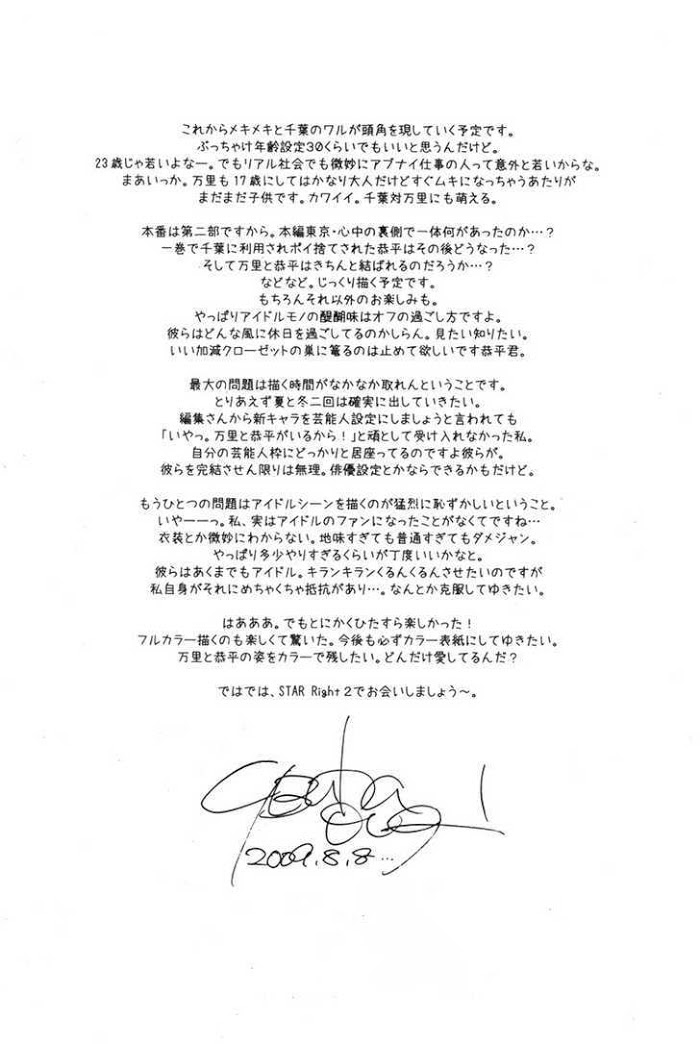 これからメキメキと千葉のワルが頭角を現していく予定です。
ぶっちゃけ年齢設定30くらいでもいいと思うんだけど。
23歳じゃ若いよなー。でもリアル社会でも微妙にアブナイ仕事の人って意外と若いからな。
まあいっか。万里も17歳にしてはかなり大人だけどすぐムキになっちゃうあたりが
まだまだ子供です。カワイイ。千葉対万里にも萌える。
本番は第二部ですから。本編東京・心中の裏側で一体何があったのか…?
一巻で千葉に利用されポイ捨てされた恭平はその後どうなった…?
そして万里と恭平はきちんと結ばれるのだろうか…?
などなど。じっくり描く予定です。
もちろんそれ以外のお楽しみも。
やっぱりアイドルモノの醍醐味はオフの過ごし方ですよ。
彼らはどんな風に休日を過ごしてるのかしらん。見たい知りたい。
いい加減クローゼットの巣に篭るのは止めて欲しいです恭平君。
最大の問題は描く時間がなかなか取れんということです。
とりあえず夏と冬二回は確実に出していきたい。
編集さんから新キャラを芸能人設定にしましょうと言われても
「いやっ。万里と恭平がいるから!」と頑として受け入れなかった私。
自分の芸能人枠にどっかりと居座ってるのですよ彼らが。
彼らを完結させん限りは無理。俳優設定とかならできるかもだけど。
もうひとつの問題はアイドルシーンを描くのが猛烈に恥ずかしいということ。
いやーーっ。私、実はアイドルのファンになったことがなくてですね…
衣装とか微妙にわからない。地味すぎても普通すぎてもダメジャン。
やっぱり多少やりすぎるくらいが丁度いいかなと。
彼らはあくまでもアイドル。キランキランくるんくるんさせたいのですが
私自身がそれにめちゃくちゃ抵抗があり…。なんとか克服してゆきたい。
はあああ。でもとにかくひたすら楽しかった!
フルカラー描くのも楽しくて驚いた。今後も必ずカラー表紙にしてゆきたい。
万里と恭平の姿をカラーで残したい。どんだけ愛してるんだ?
ではでは、STAR Right2でお会いしましょう〜。
2009.8.8…